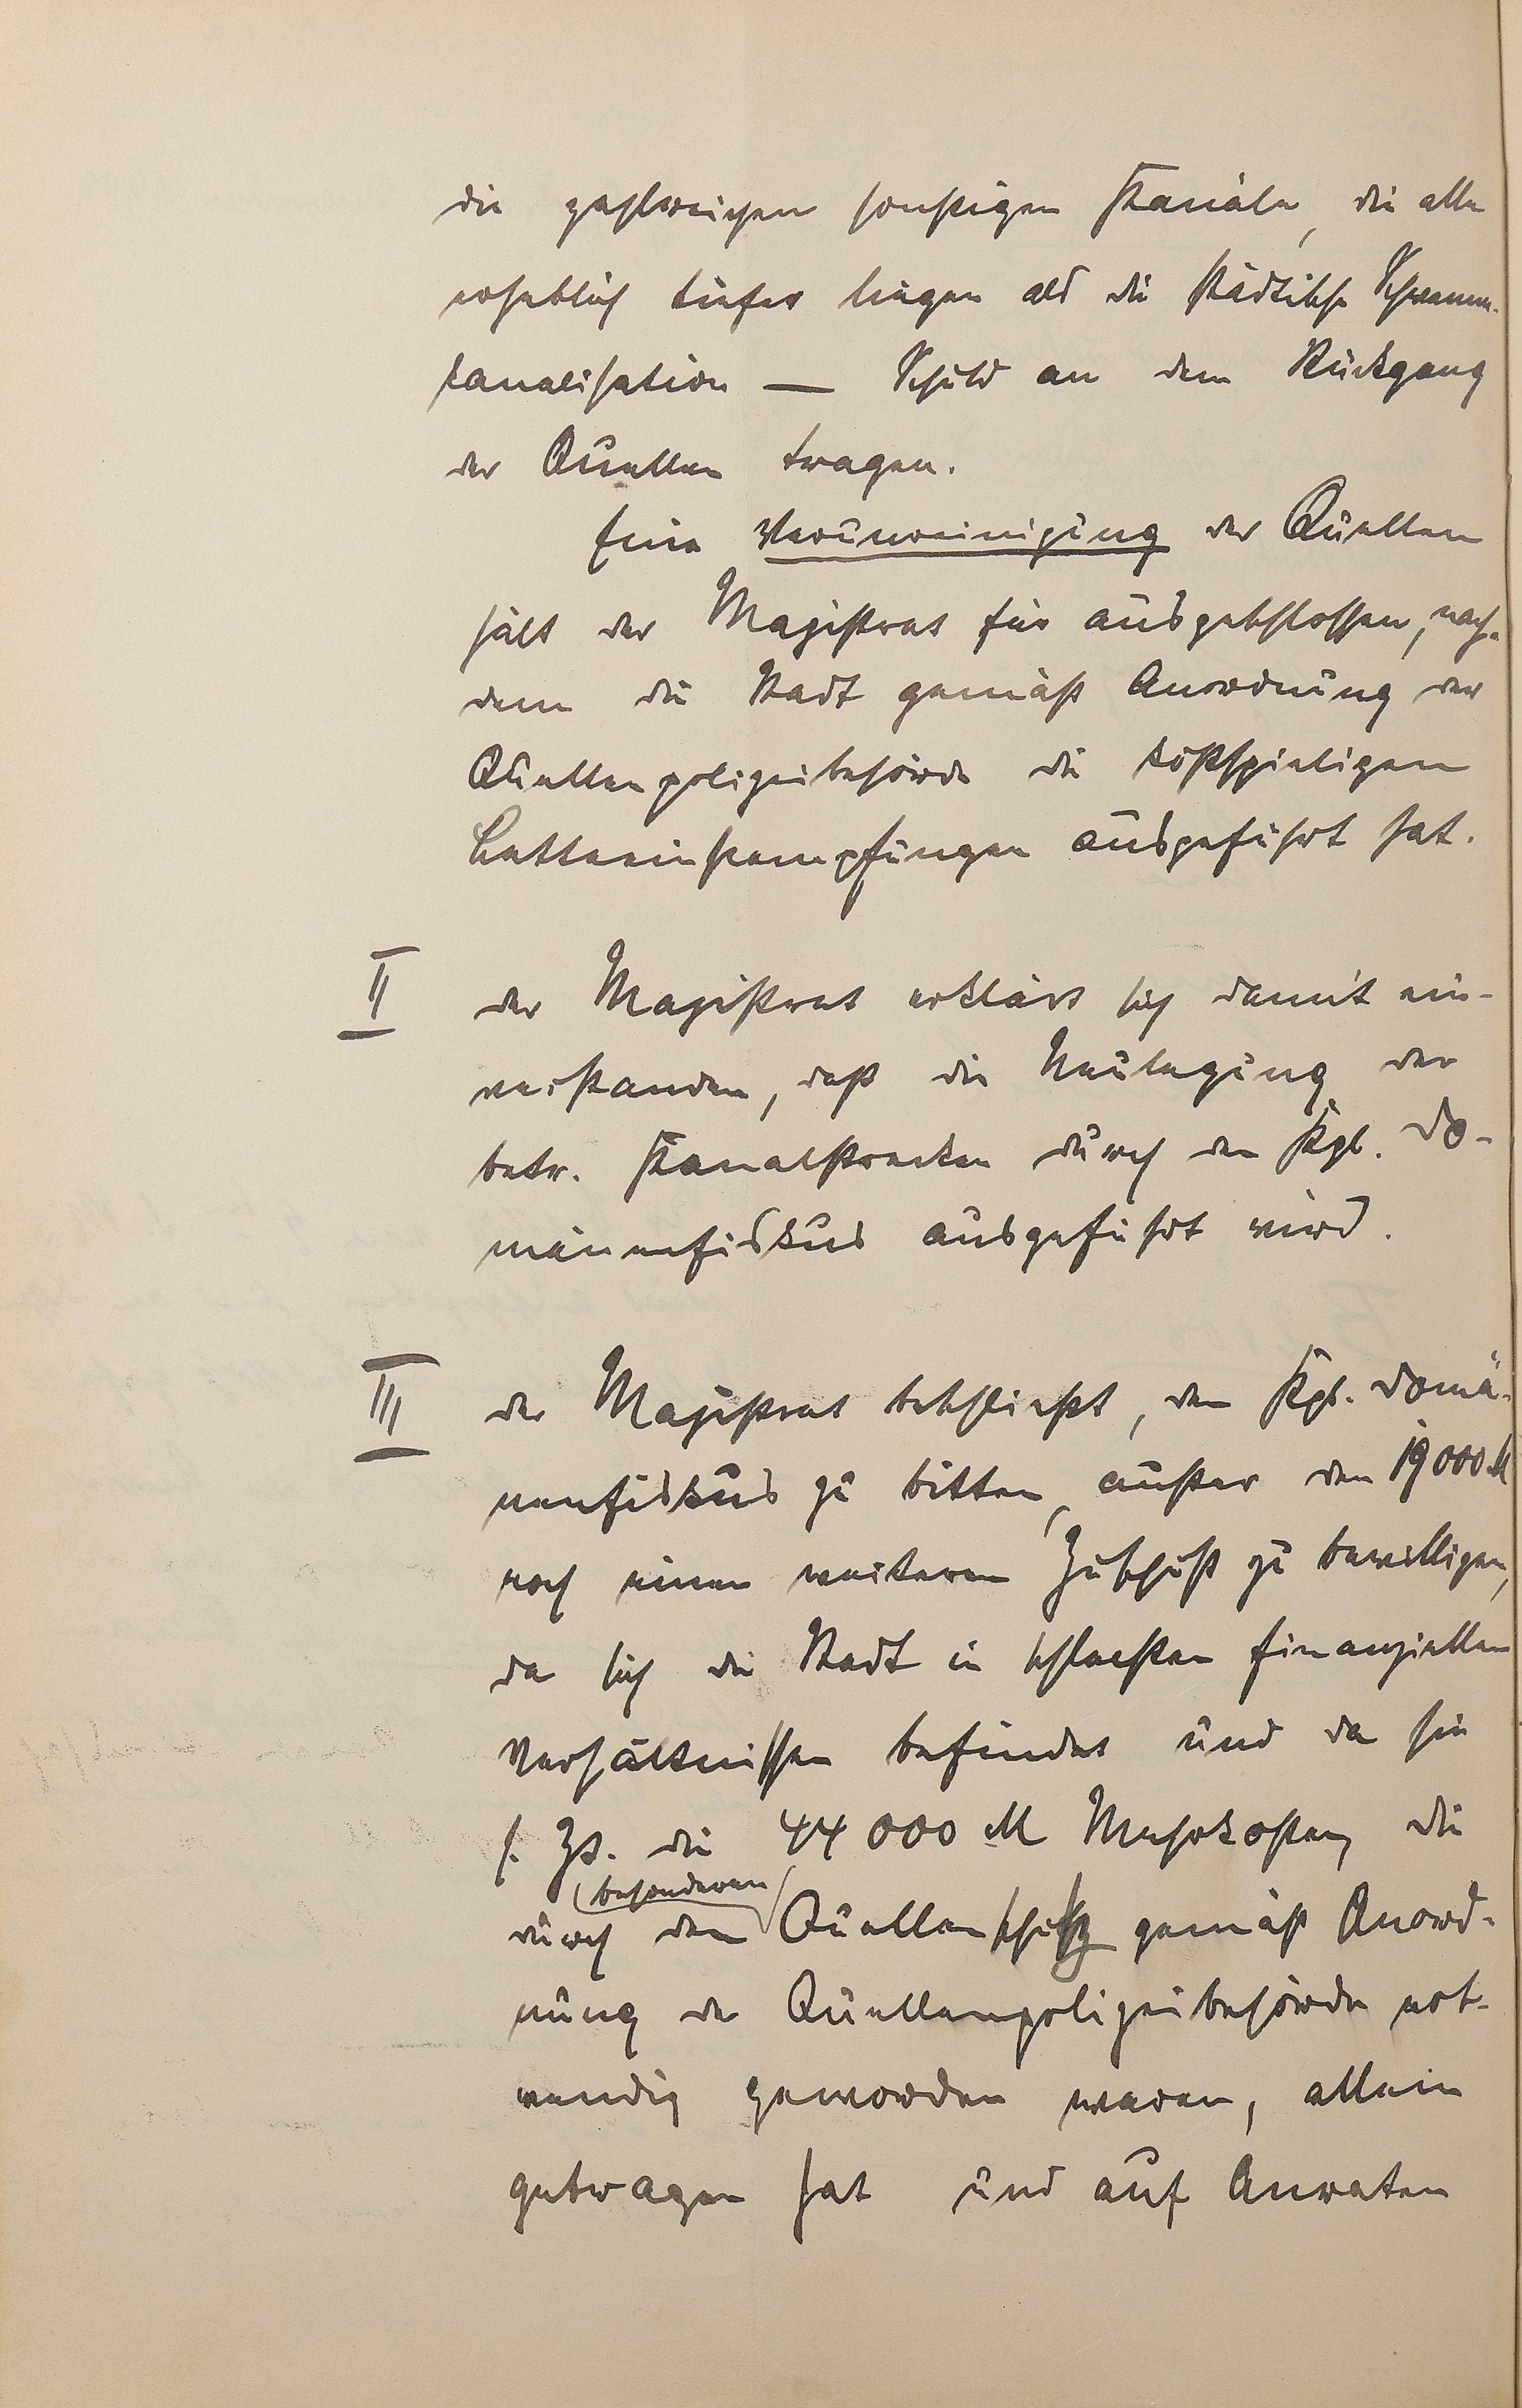 die zahlreichen sonstigen Kanäle, die alle
erheblich tiefer liegen als die städtische Schwemm-
kanalisation — Schuld an dem Rückgang
der Quellen tragen.
Eine Verunreinigung der Quellen
hält der Magistrat für ausgeschlossen, nach-
dem die Stadt gemäß Anordnung der
Quellenpolizeibehörde die kostspieligen
Letteeinstampfungen ausgeführt hat.
II der Magistrat erklärt sich damit ein-
verstanden, daß die Neulegung der
betr. Kanalstrecken durch den Kgl. Do-
mänenfiskus ausgeführt wird.
III der Magistrat beschließt, den Kgl. Domä-
nenfiskus zu bitten, außer den 19000 M
noch einen weiteren Zuschuß zu bewilligen,
da sich die Stadt in schlechten finanziellen
Verhältnissen befindet und da sie
s. Zt. die 44 000 M Mehrkosten, die
durch den besonderen Quellenschutz gemäß Anord-
nung der Quellenpolizeibehörde not-
wendig geworden waren, allein
getragen hat und auf Anraten